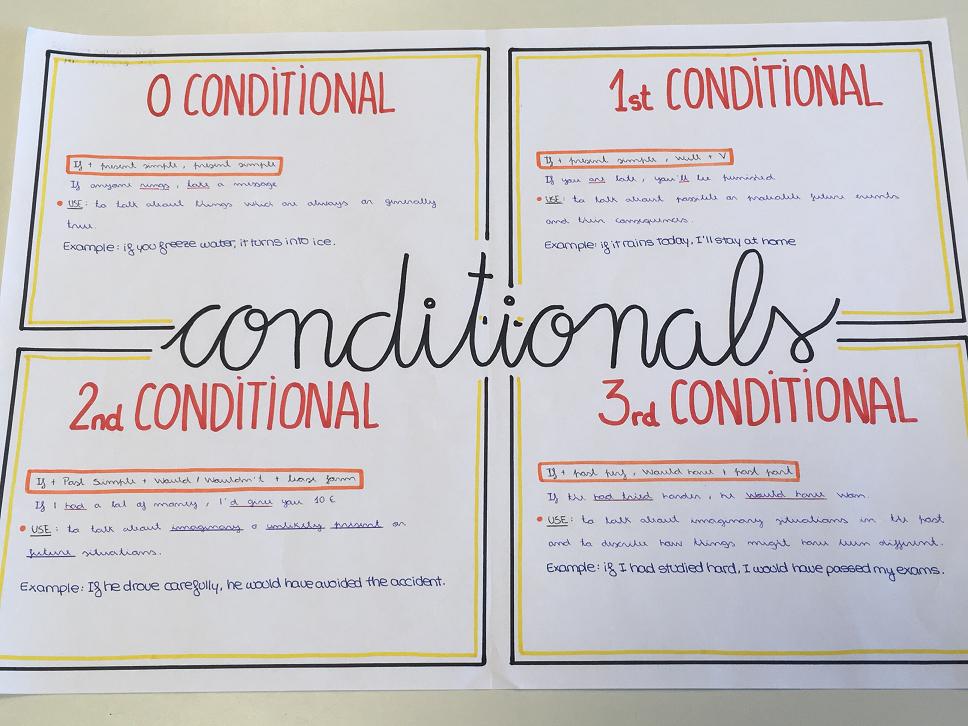 0 CONDITIONAL
If + present simple, present simple
If anyone rings, take a message
• USE: to talk about things which are always or generally
true.
Example: if you freeze water, it turns into ice.
1st CONDITIONAL
If + present simple, will + V
If you are late, you'll be punished
• USE: to talk about possible or probable future events
and their consequences.
Example: if it rains today, I'll stay at home
conditionals
2nd CONDITIONAL
If + Past Simple + Would / Wouldn't + base form
If I had a lot of money, I'd give you 10 €
• USE: to talk about imaginary o unlikely present or
future situations.
Example: If he drove carefully, he would have avoided the accident.
3rd CONDITIONAL
If + past perf, Would have + past part
If he had tried harder, he would have won.
• USE: to talk about imaginary situations in the past
and to describe how things might have been different.
Example: if I had studied hard, I would have passed my exams.